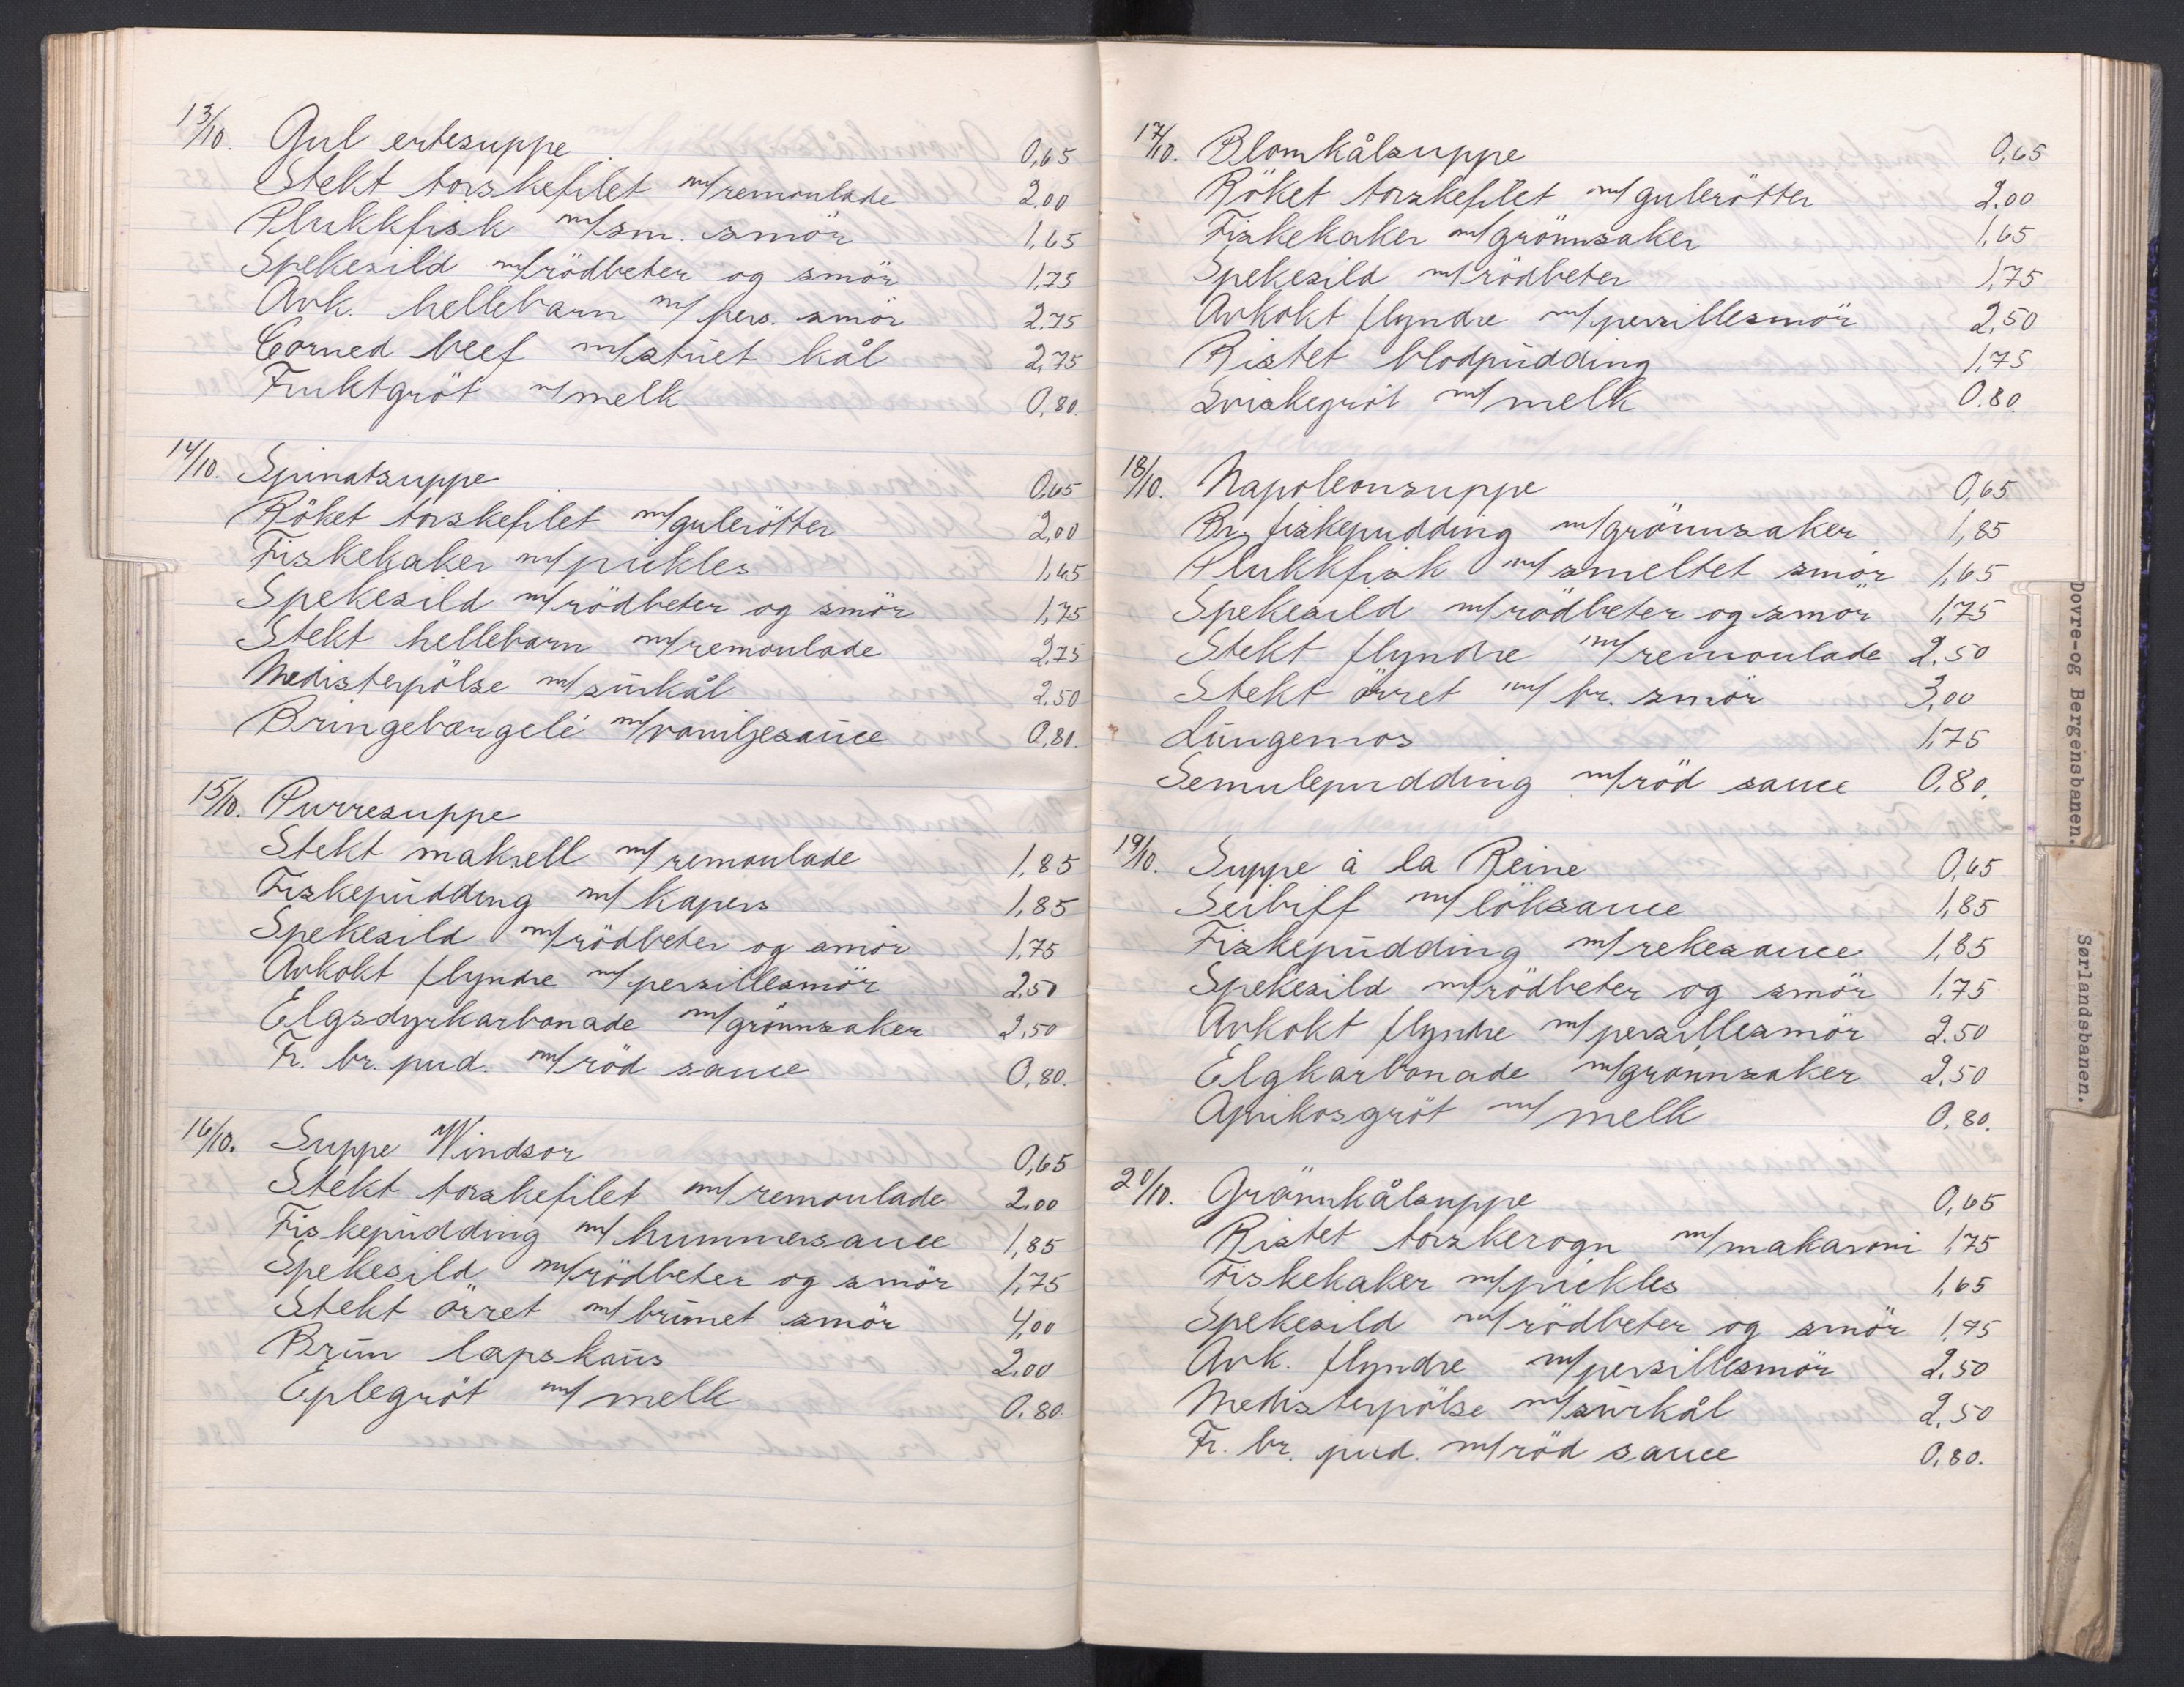 13/10. Gul ertesuppe 0,65
Stekt torskefilet m/remoulade 2,00
Plukkfisk m/sm. smör 1,65
Spekesild m/rödbeter og smör 1,75
Avk. hellebarn m/pers. smör 2,75
Corned beef m/stuet kål 2,75
Fruktgröt m/melk 0,80.
14/10. Spinatsuppe 0,65
Röket torskefilet m/gulerötter 2,00
Fiskekaker m/pickles 1,65
Spekesild m/rödbeter og smör 1,75
Stekt hellebarn m/remoulade 2,75
Medisterpölse m/surkål 2,50
Bringebærgelé m/vaniljesauce 0,80.
15/10. Purresuppe
Stekt makrell m/remoulade 1,85
Fiskepudding m/kapers 1,85
Spekesild m/rödbeter og smör 1,75
Avkokt flyndre m/persillesmör 2,50
Elgsdyrkarbonade m/grönnsaker 2,50
Fr. br. pud. m/röd sauce 0,80.
16/10. Suppe Windsor 0,65
Stekt torskefilet m/remoulade 2,00
Fiskepudding m/hummersauce 1,85
Spekesild m/rödbeter og smör 1,75
Stekt örret m/brunet smör 4,00
Brun lapskaus 2,00
Eplegröt m/melk 0,80.
17/10. Blomkålsuppe 0,65
Röket torskefilet m/gulerötter 2.00
Fiskekaker m/grönnsaker 1,65
Spekesild m/rödbeter 1,75
Avkokt flyndre m/persillesmör 2,50
Ristet blodpudding 1,75
Sviskegröt m/melk 0.80.
18/10. Napoleonsuppe 0,65
Br. fiskepudding m/grönnsaker 1,85
Plukkfisk m/smeltet smör 1,65
Spekesild m/rödbeter og smör 1,75
Stekt flyndre m/remoulade 2.50
Stekt örret m/br. smör 3,00
Lungemos 1,75
Semulepudding m/röd sauce 0,80.
19/10. Suppe á la Reine 0,65
Seibiff m/löksauce 1,85
Fiskepudding m/rekesauce 1,85
Spekesild m/rödbeter og smör 1,75
Avkokt flyndre m/persillesmör 2.50
Elgkarbonade m/grönnsaker 2,50
Aprikosgröt m/melk 0,80.
20/10. Grönnkålsuppe 0,65
Ristet torskerogn m/makaroni 1,75
Fiskekaker m/pickles 1,65
Spekesild m/rödbeter og smör 1,75
Avk. flyndre m/persillesmör 2.50
Medisterpölse m/surkål 2,50
Fr. br. pud. m/röd sauce 0,80.
Dovre-og Bergensbanen.
Sørlandsbanen.